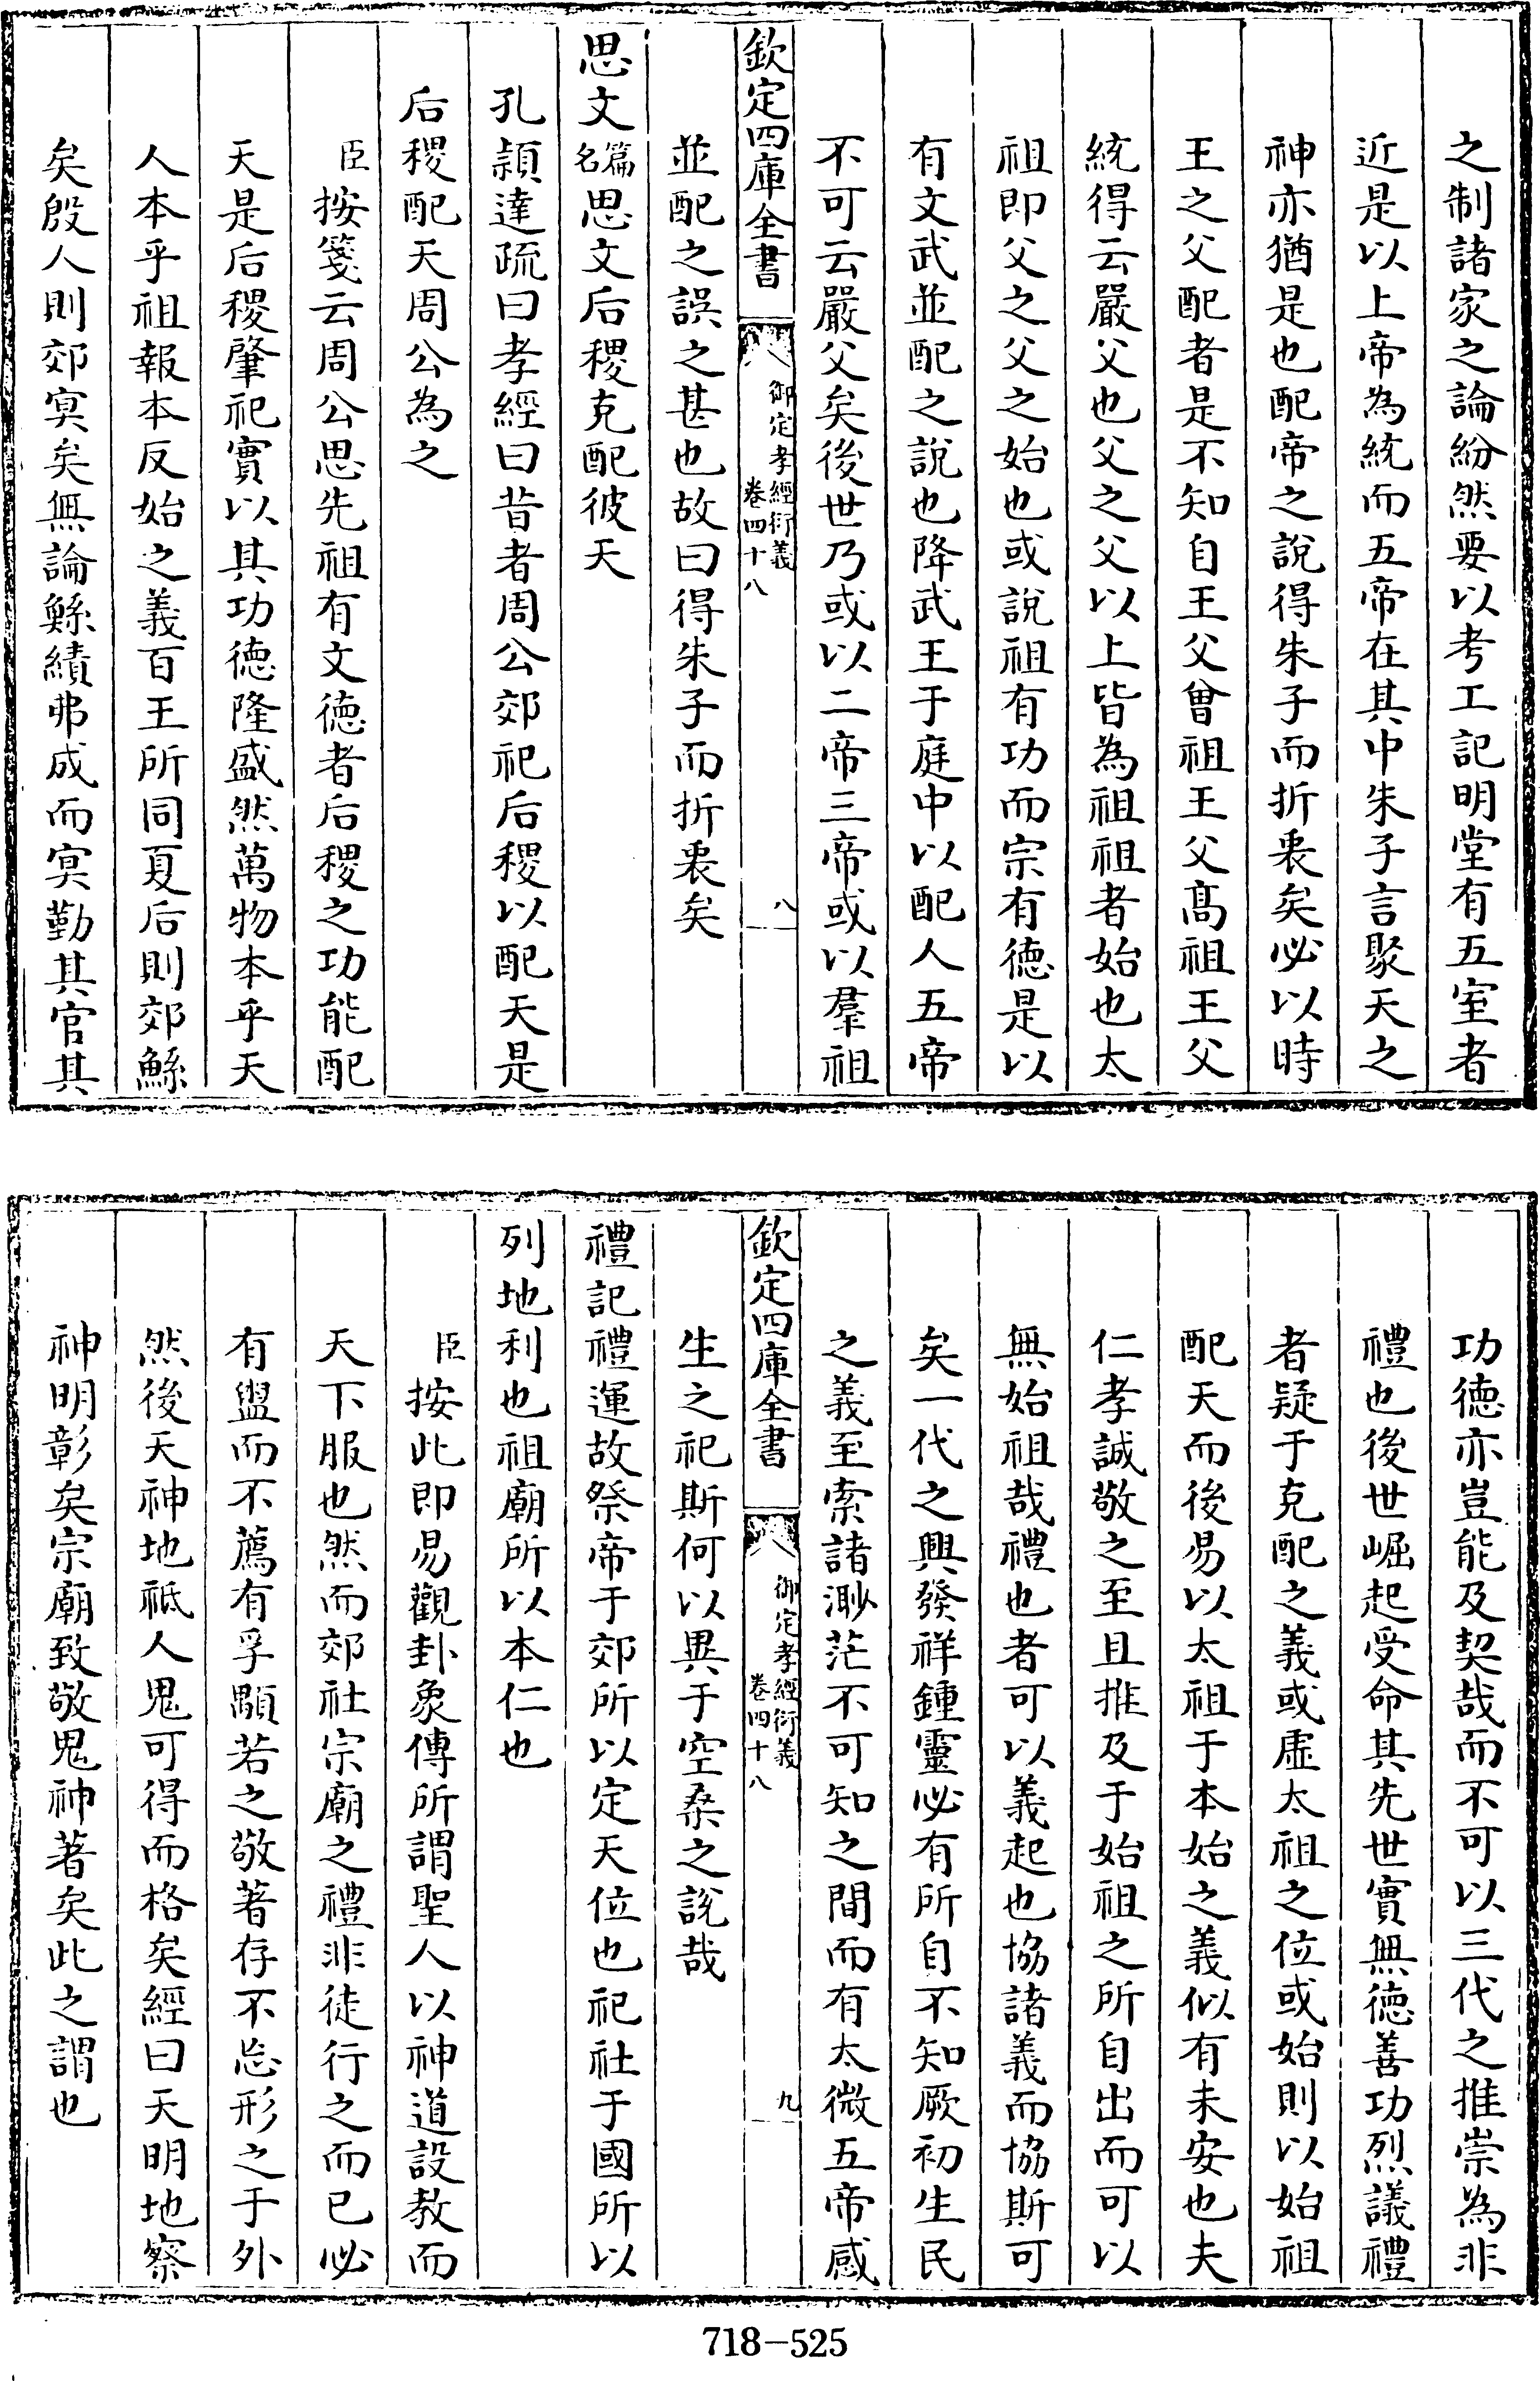 之制諸家之論紛然要以考工記明堂有五室者
近是以上帝為統而五帝在其中朱子言聚天之
神亦猶是也配帝之說得朱子而折衷矣必以時
王之父配者是不知自王父曾祖王父髙祖王父
統得云嚴父也父之父以上皆為祖祖者始也太
祖即父之父之始也或說祖有功而宗有德是以
有文武並配之說也降武王于庭中以配人五帝
不可云嚴父矣後世乃或以二帝三帝或以羣祖
欽定四庫全書 御定孝經衍義 卷四十八 八
並配之誤之甚也故曰得朱子而折衷矣
思文篇名思文后稷克配彼天
孔頴達疏曰孝經曰昔者周公郊祀后稷以配天是
后稷配天周公為之
臣按箋云周公思先祖有文德者后稷之功能配
天是后稷肇祀實以其功德隆盛然萬物本乎天
人本乎祖報本反始之義百王所同夏后則郊鯀
矣殷人則郊冥矣無論鯀績弗成而冥勤其官其
功德亦豈能及契哉而不可以三代之推崇為非
禮也後世崛起受命其先世實無德善功烈議禮
者疑于克配之義或虛太祖之位或始則以始祖
配天而後易以太祖于本始之義似有未安也夫
仁孝誠敬之至且推及于始祖之所自出而可以
無始祖哉禮也者可以義起也協諸義而協斯可
矣一代之興發祥鍾靈必有所自不知厥初生民
之義至索諸渺茫不可知之間而有太微五帝感
欽定四庫全書 御定孝經衍義 卷四十八 九
生之祀斯何以異于空桑之說哉
禮記禮運故祭帝于郊所以定天位也祀社于國所以
列地利也祖廟所以本仁也
臣按此即易觀卦彖傳所謂聖人以神道設教而
天下服也然而郊社宗廟之禮非徒行之而已必
有盥而不薦有孚顒若之敬著存不忘形之于外
然後天神地祗人鬼可得而格矣經曰天明地察
神明彰矣宗廟致敬鬼神著矣此之謂也
718-525